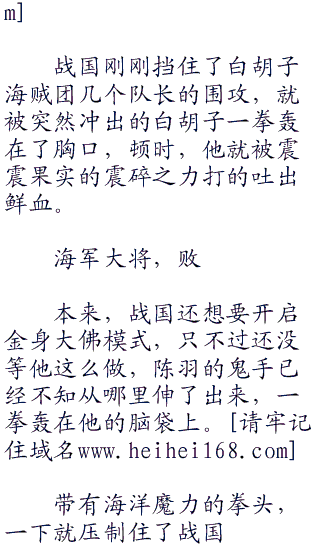 m]
战国刚刚挡住了白胡子
海贼团几个队长的围攻，就
被突然冲出的白胡子一拳轰
在了胸口，顿时，他就被震
震果实的震碎之力打的吐出
鲜血。
海军大将，败
本来，战国还想要开启
金身大佛模式，只不过还没
等他这么做，陈羽的鬼手已
经不知从哪里伸了出来，一
拳轰在他的脑袋上。[请牢记
住域名www.heihei168.com]
带有海洋魔力的拳头，
一下就压制住了战国